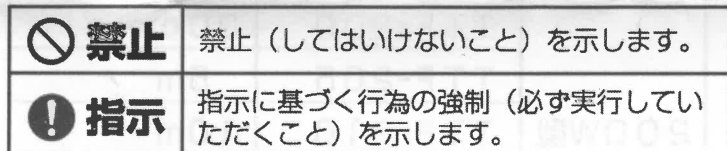 禁止 禁止（してはいけないこと）を示します。
指示 指示に基づく行為の強制（必ず実行してい
ただくこと）を示します。